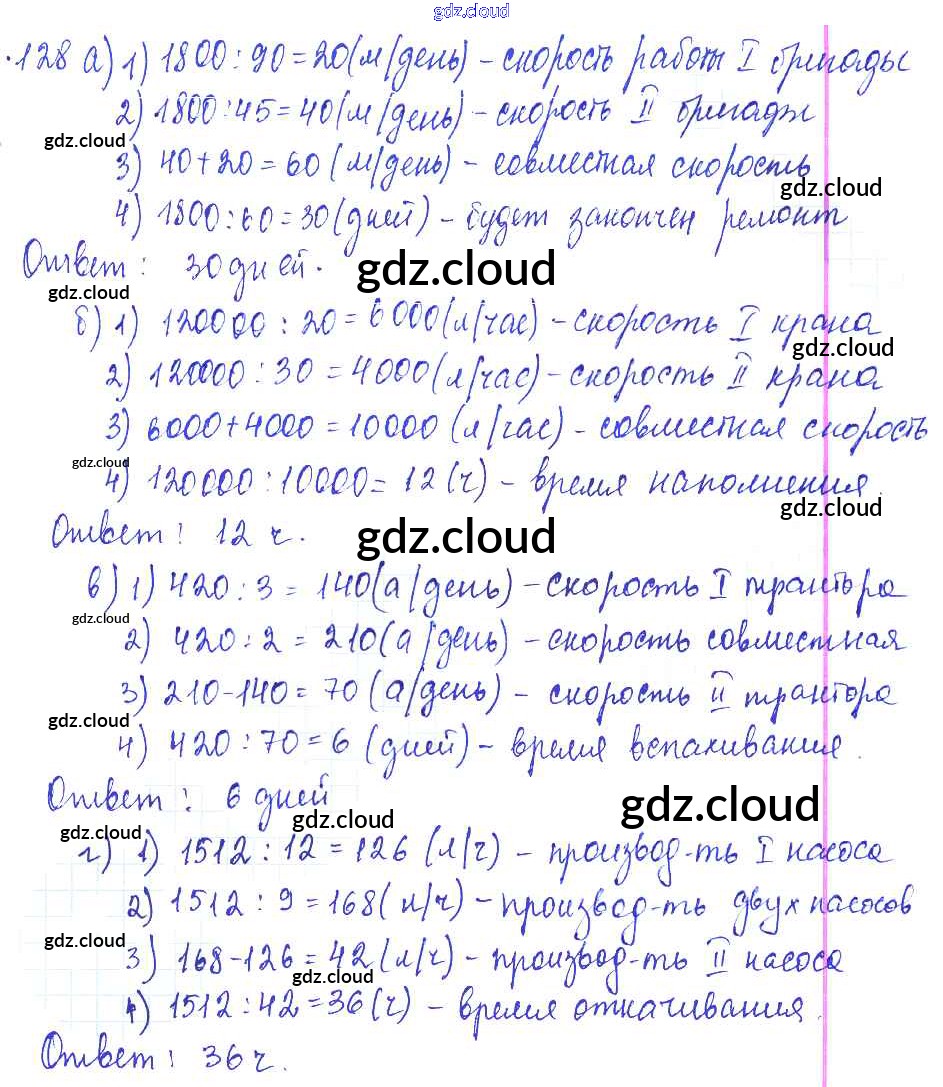 gdz.cloud
128 а) 1) 1800 : 90 = 20 (м/день) – скорость работы I бригады
2) 1800 : 45 = 40 (м/день) – скорость II бригады
gdz.cloud
3) 40 + 20 = 60 (м/день) – совместная скорость
gdz.cloud
4) 1800 : 60 = 30 (дней) – будет закончен ремонт
Ответ : 30 дней.
gdz.cloud
gdz.cloud
б) 1) 120000 : 20 = 6000 (л/час) – скорость I крана
gdz.cloud
2) 120000 : 30 = 4000 (л/час) – скорость II крана
3) 6000 + 4000 = 10000 (л/час) – совместная скорость
gdz.cloud
4) 120000 : 10000 = 12 (ч) – время наполнения.
gdz.cloud
Ответ : 12 ч.
gdz.cloud
в) 1) 420 : 3 = 140 (а/день) – скорость I трактора
gdz.cloud
2) 420 : 2 = 210 (а/день) – скорость совместная
3) 210 - 140 = 70 (а/день) – скорость II трактора
gdz.cloud
4) 420 : 70 = 6 (дней) – время вспахивания.
Ответ : 6 дней
gdz.cloud
gdz.cloud
gdz.cloud
г) 1) 1512 : 12 = 126 (л/ч) – производ-ть I насоса
2) 1512 : 9 = 168 (л/ч) – производ-ть двух насосов
gdz.cloud
3) 168 - 126 = 42 (л/ч) – производ-ть II насоса
gdz.cloud
4) 1512 : 42 = 36 (ч) – время откачивания.
Ответ : 36 ч.